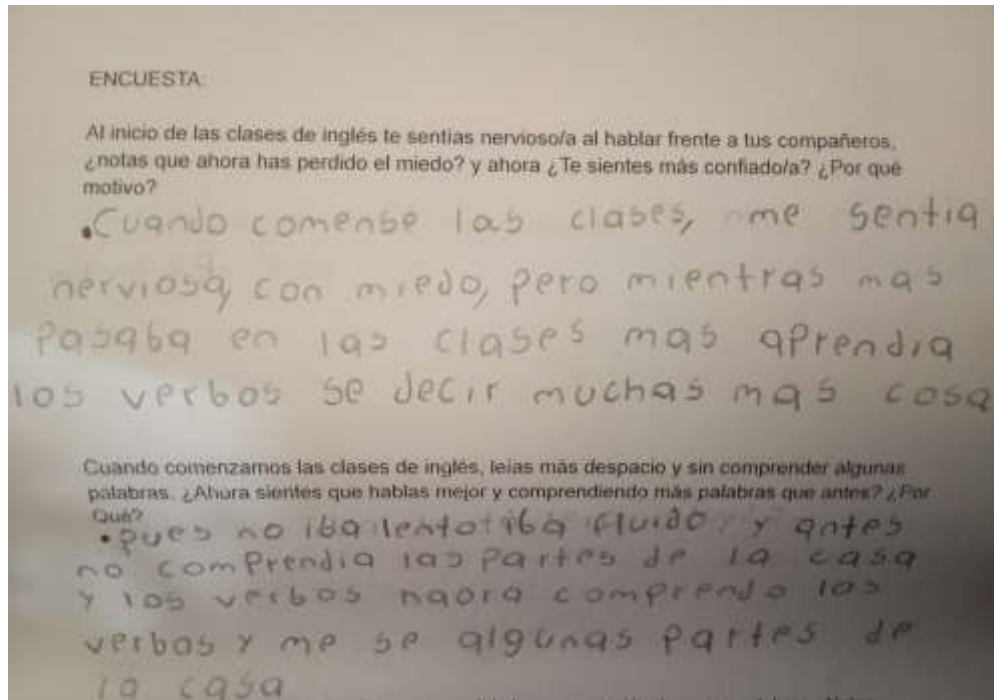 ENCUESTA:
Al inicio de las clases de inglés te sentias nervioso/a al hablar frente a tus compañeros,
¿notas que ahora has perdido el miedo? y ahora ¿Te sientes más confiado/a? ¿Por qué
motivo?
•Cuando comense las clases, me sentia
nerviosa, con miedo, pero mientras mas
Pasaba en las clases mas aprendia
los verbos se decir muchas mas cosa
Cuando comenzamos las clases de inglés, leías más despacio y sin comprender algunas
palabras. ¿Ahora sientes que hablas mejor y comprendiendo más palabras que antes? ¿Por
Qué?
•pues no iba lento iba fluido y antes
no comprendia las partes de la casa
y los verbos haora comprendo los
verbos y me se algunas partes de
la casa